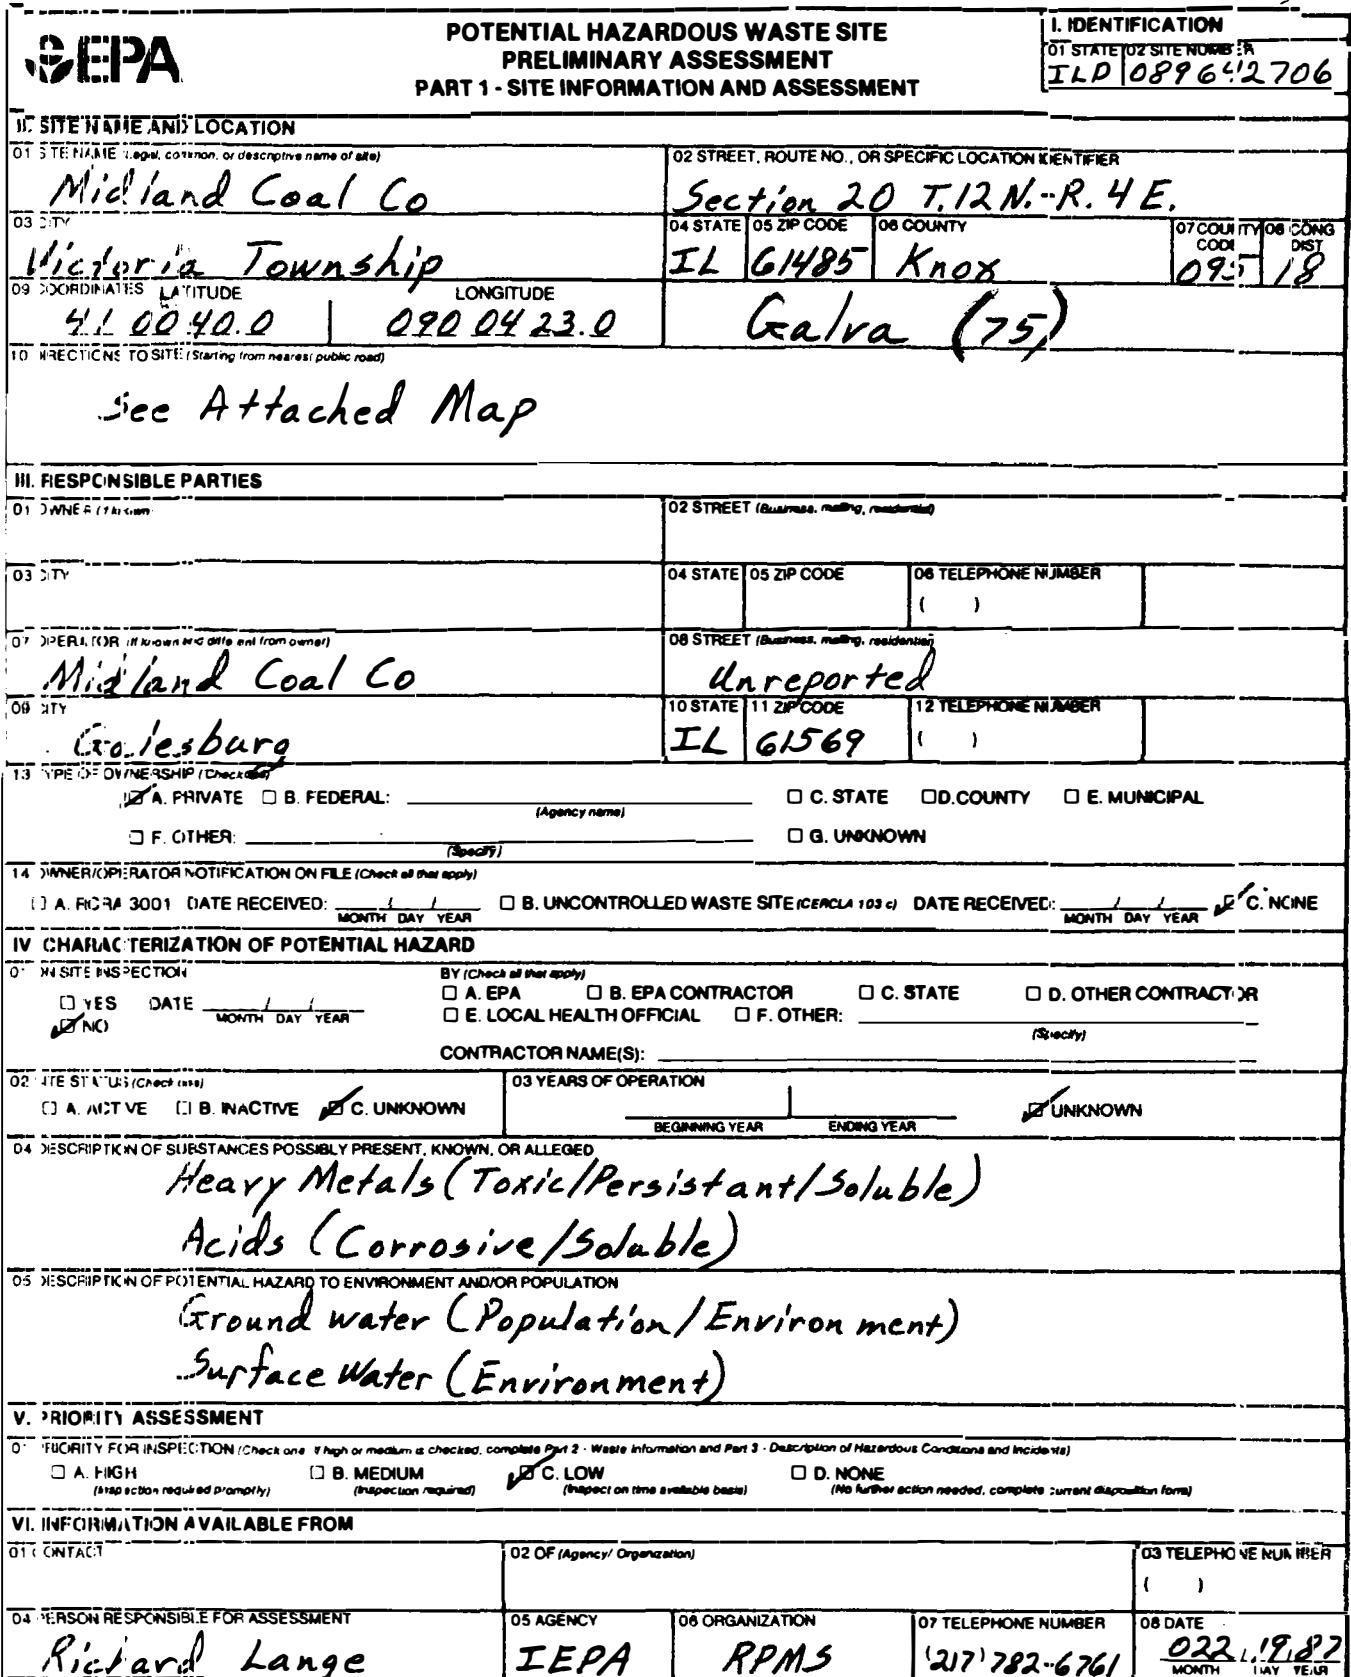 EPA
POTENTIAL HAZARDOUS WASTE SITE
PRELIMINARY ASSESSMENT
PART 1 - SITE INFORMATION AND ASSESSMENT
I. IDENTIFICATION
01 STATE 02 SITE NUMBER
ILD 089642706
II. SITE NAME AND LOCATION
01 SITE NAME (Legal, common, or descriptive name of site) 02 STREET, ROUTE NO., OR SPECIFIC LOCATION IDENTIFIER
Midland Coal Co Section 20 T.12N.-R. 4 E.
03 CITY 04 STATE 05 ZIP CODE 06 COUNTY 07 COUNTY CODE 08 CONG DIST
Victoria Township IL 61485 Knox 095 18
09 COORDINATES LATITUDE LONGITUDE
41 00 40.0 090 04 23.0 Galva (75)
10 DIRECTIONS TO SITE (Starting from nearest public road)
See Attached Map
III. RESPONSIBLE PARTIES
01 OWNER (if known) 02 STREET (Business, mailing, residential)
03 CITY 04 STATE 05 ZIP CODE 06 TELEPHONE NUMBER
( )
07 OPERATOR (if known and different from owner) 08 STREET (Business, mailing, residential)
Midland Coal Co Unreported
09 CITY 10 STATE 11 ZIP CODE 12 TELEPHONE NUMBER
Galesburg IL 61569 ( )
13 TYPE OF OWNERSHIP (Check one)
A. PRIVATE B. FEDERAL: (Agency name) C. STATE D. COUNTY E. MUNICIPAL
F. OTHER: (Specify) G. UNKNOWN
14 OWNER/OPERATOR NOTIFICATION ON FILE (Check all that apply)
A. RCRA 3001 DATE RECEIVED: / / B. UNCONTROLLED WASTE SITE (CERCLA 103 c) DATE RECEIVED: / / C. NONE
MONTH DAY YEAR MONTH DAY YEAR
IV. CHARACTERIZATION OF POTENTIAL HAZARD
01 ON SITE INSPECTION BY (Check all that apply)
YES DATE / / A. EPA B. EPA CONTRACTOR C. STATE D. OTHER CONTRACTOR
NO MONTH DAY YEAR E. LOCAL HEALTH OFFICIAL F. OTHER: (Specify)
CONTRACTOR NAME(S):
02 SITE STATUS (Check one) 03 YEARS OF OPERATION
A. ACTIVE B. INACTIVE C. UNKNOWN BEGINNING YEAR ENDING YEAR UNKNOWN
04 DESCRIPTION OF SUBSTANCES POSSIBLY PRESENT, KNOWN, OR ALLEGED
Heavy Metals (Toxic/Persistant/Soluble)
Acids (Corrosive/Soluble)
05 DESCRIPTION OF POTENTIAL HAZARD TO ENVIRONMENT AND/OR POPULATION
Ground water (Population/Environment)
Surface Water (Environment)
V. PRIORITY ASSESSMENT
01 PRIORITY FOR INSPECTION (Check one. If high or medium is checked, complete Part 2 - Waste Information and Part 3 - Description of Hazardous Conditions and Incidents)
A. HIGH B. MEDIUM C. LOW D. NONE
(Inspection required promptly) (Inspection required) (Inspect on time available basis) (No further action needed, complete current disposition form)
VI. INFORMATION AVAILABLE FROM
01 CONTACT 02 OF (Agency/Organization) 03 TELEPHONE NUMBER
( )
04 PERSON RESPONSIBLE FOR ASSESSMENT 05 AGENCY 06 ORGANIZATION 07 TELEPHONE NUMBER 08 DATE
Richard Lange IEPA RPMS (217) 782-6761
MONTH DAY YEAR